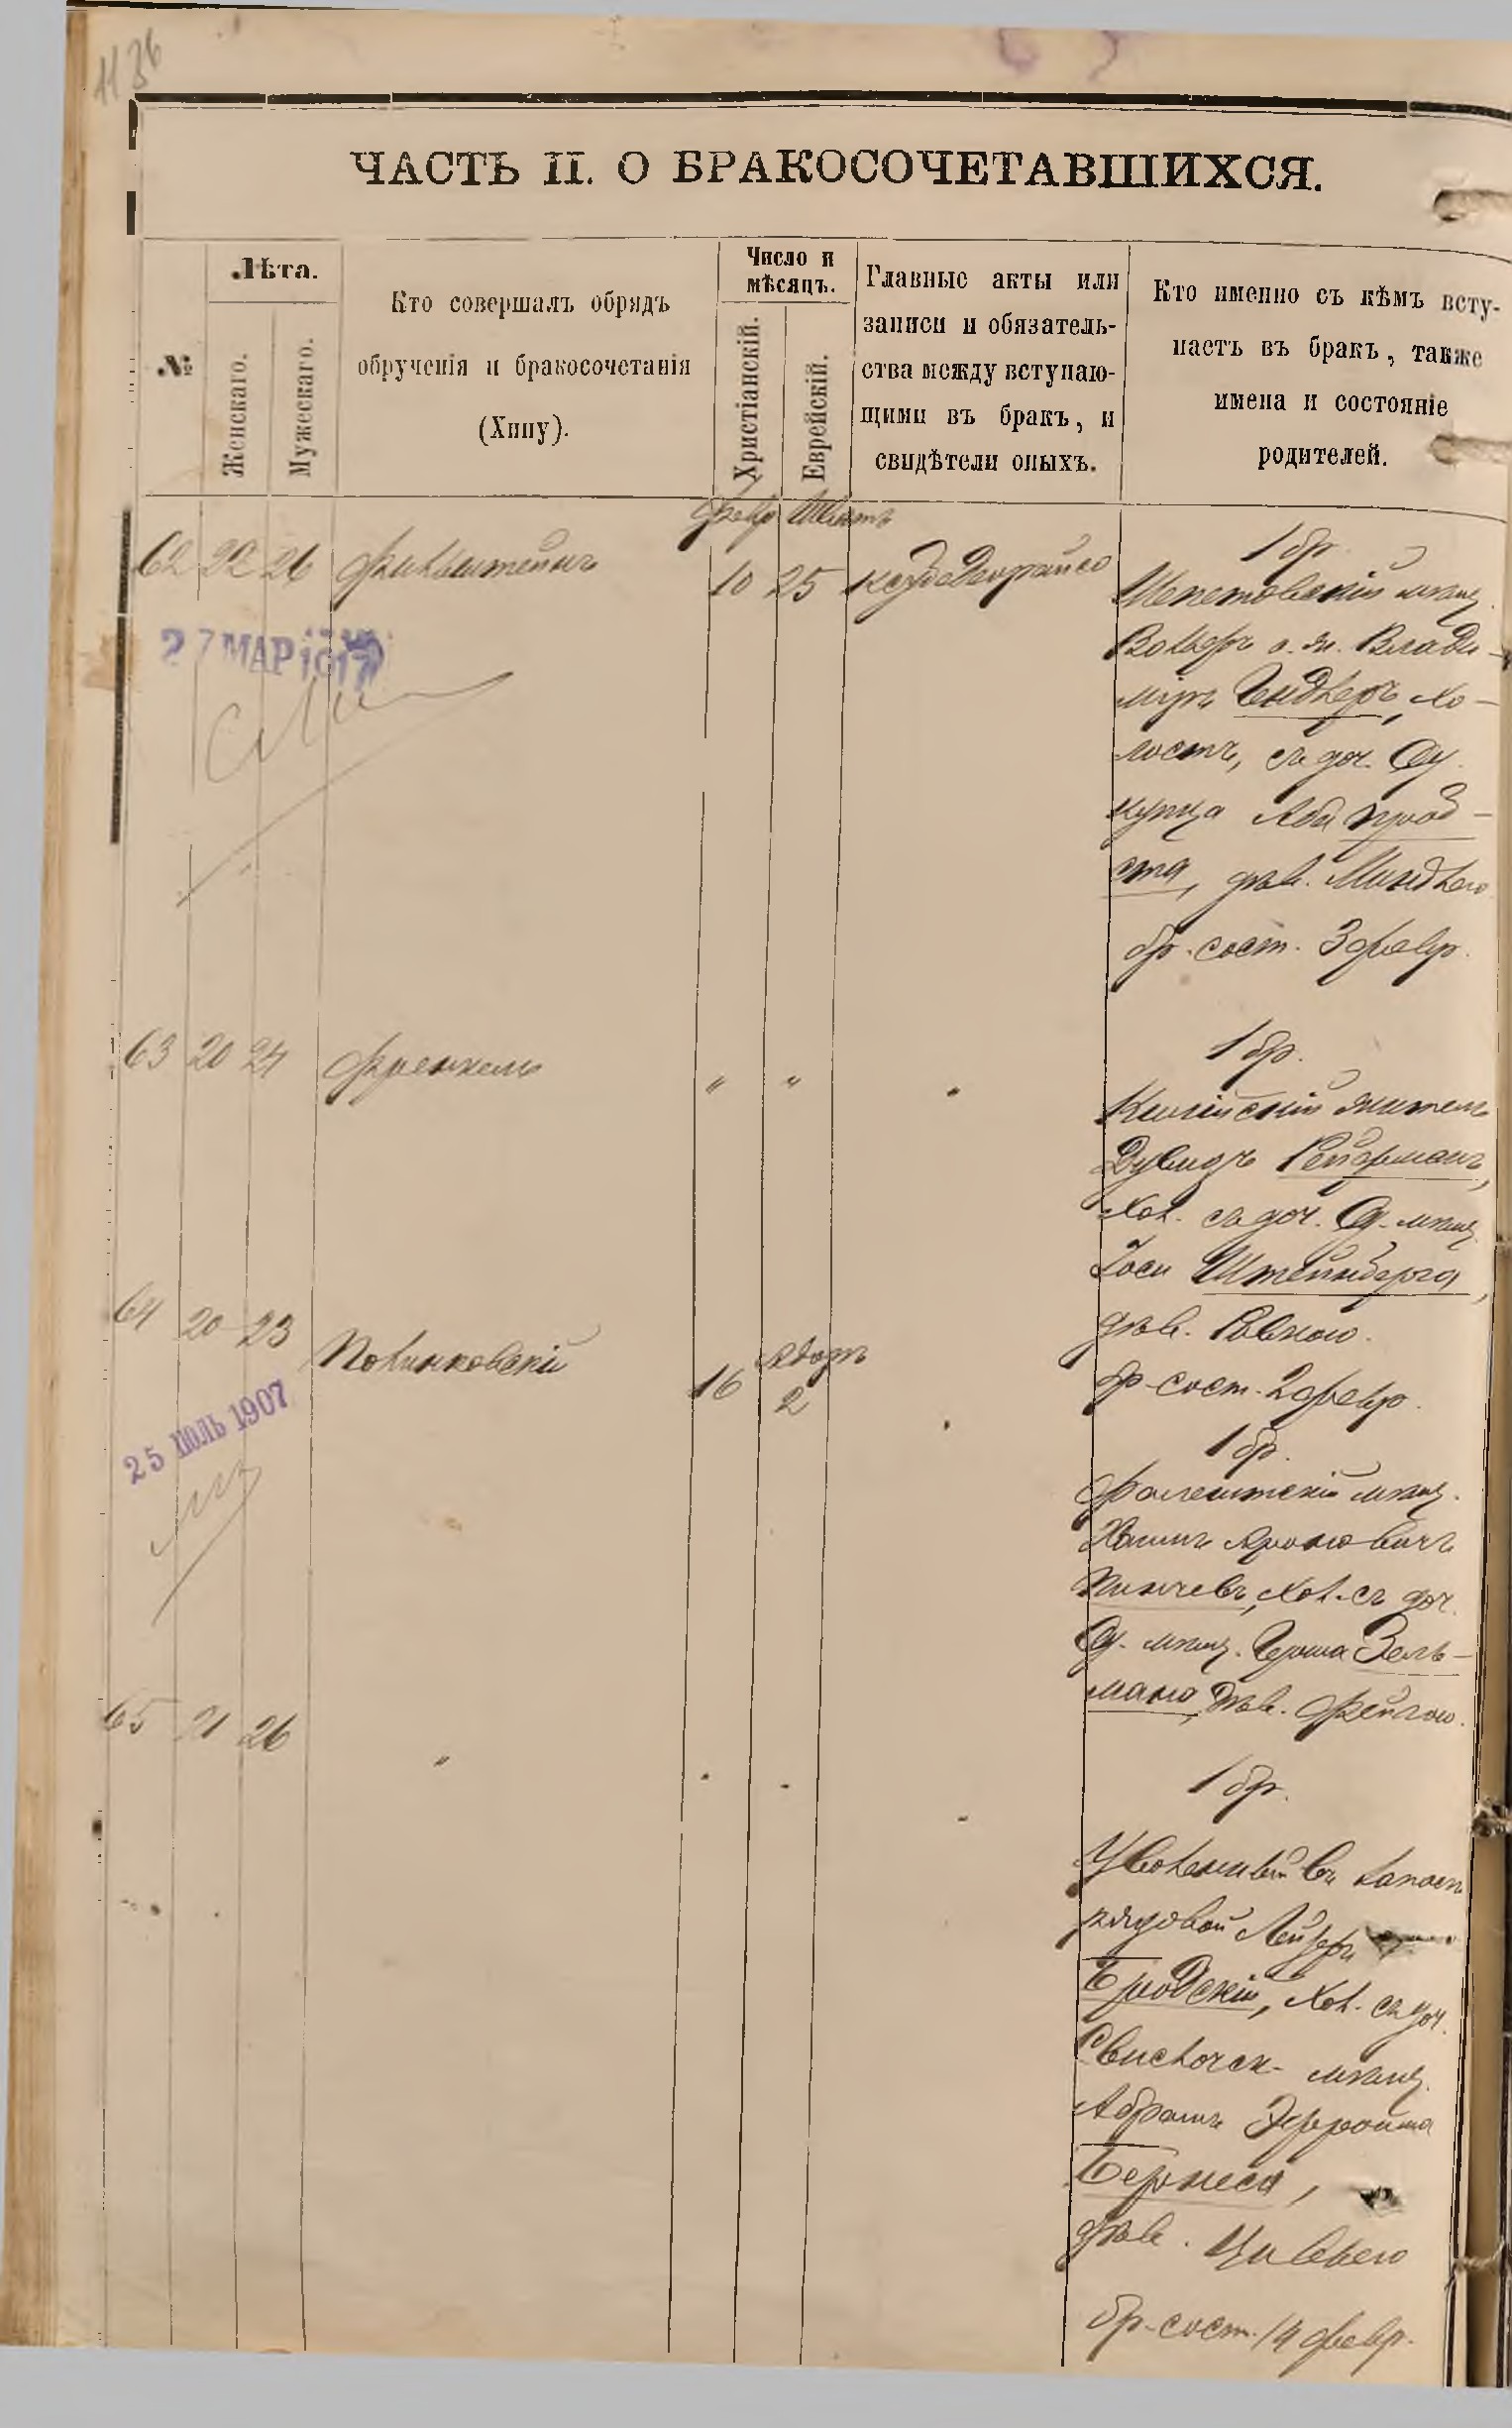 1136
ЧАСТЬ II. О БРАКОСОЧЕТАВШИХСЯ.
№
Лѣта.
Женскаго.
Мужескаго.
Кто совершалъ обрядъ
обрученія и бракосочетанія
(Хипу).
Число и
мѣсяцъ.
Христіанскій.
Еврейскій.
Главные акты или
записи и обязатель-
ства между вступаю-
щими въ бракъ, и
свидѣтели оныхъ.
Кто именно съ кѣмъ всту-
паетъ въ бракъ, также
имена и состояніе
родителей.
Февр Шватъ
62 22 26 Финкельштейнъ 10 25
1 бр.
Шепетовскій мѣщ.
Вольфъ о. же Влади-
міръ Гендлеръ, хо-
лостъ, съ доч. Од.
купца Аба Прод-
ста, дѣв. Миндлею
бр. сост. 3 февр.
27 МАР 1917
63 20 24 Френкель " " "
1 бр.
Килійскій житель
Дувидъ Рейдерманъ,
хол. съ доч. Од. мѣщ.
Іоси Штейнберга,
дѣв. Ровною.
бр. сост. 2 февр.
64 20 23 Полинковскій 16 Адаръ 2 "
25 ІЮЛЬ 1907
1 бр.
Фалештскій мѣщ.
Хаимъ Ароновичъ
Пинчевъ, хол. съ доч.
Од. мѣщ. Герша Зель-
мана, дѣв. Фейгою.
65 21 26 " " " "
1 бр.
Уволенный въ запасъ
рядовой Лейзеръ
Бродскій, хол. съ доч.
Свислочск. мѣщ.
Абрамъ Эфроима
Бернеса,
дѣв. Цивьею
бр. сост. 14 февр.